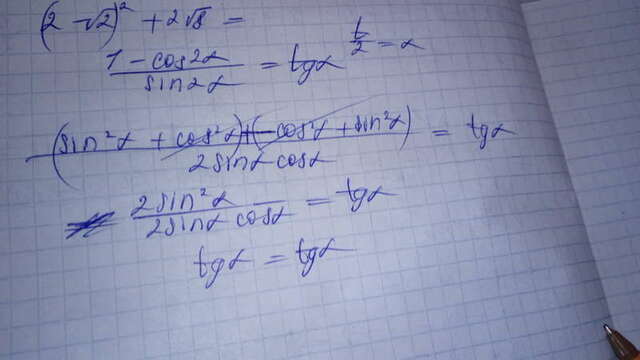 (2 - √2)² + 2√8 =
1 - cos2α / sin2α = tgα   t/2 = α
(sin²α + cos²α) + (- cos²α + sin²α) / 2sinα cosα = tgα
2sin²α / 2sinα cosα = tgα
tgα = tgα